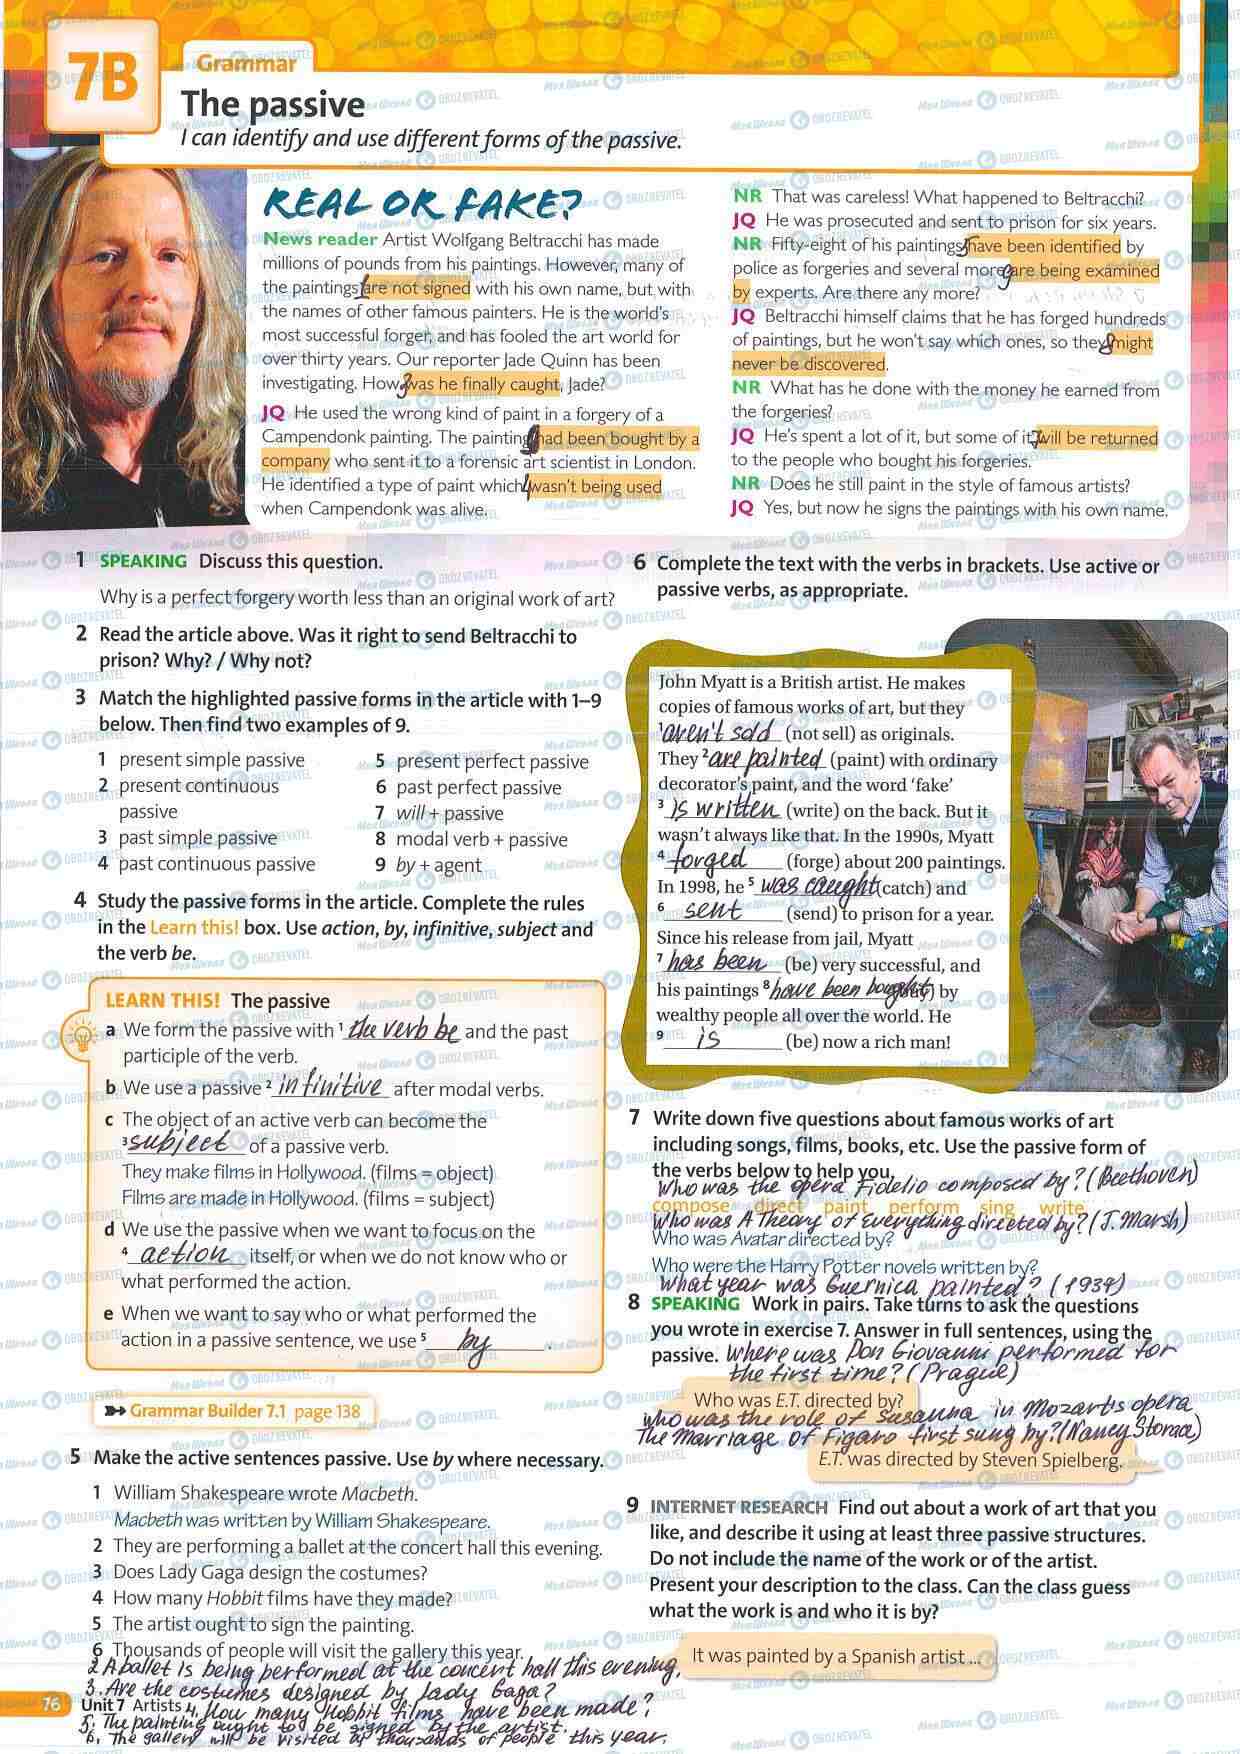 7B
Grammar
The passive
I can identify and use different forms of the passive.
REAL OR FAKE?
News reader Artist Wolfgang Beltracchi has made
millions of pounds from his paintings. However, many of
the paintings 1 are not signed with his own name, but with
the names of other famous painters. He is the world's
most successful forger, and has fooled the art world for
over thirty years. Our reporter Jade Quinn has been
investigating. How 3 was he finally caught, Jade?
JQ He used the wrong kind of paint in a forgery of a
Campendonk painting. The painting had been bought by a
company who sent it to a forensic art scientist in London.
He identified a type of paint which 4 wasn't being used
when Campendonk was alive.
NR That was careless! What happened to Beltracchi?
JQ He was prosecuted and sent to prison for six years.
NR Fifty-eight of his paintings 5 have been identified by
police as forgeries and several more 9 are being examined
by experts. Are there any more?
JQ Beltracchi himself claims that he has forged hundreds
of paintings, but he won't say which ones, so they 8 might
never be discovered.
NR What has he done with the money he earned from
the forgeries?
JQ He's spent a lot of it, but some of it 7 will be returned
to the people who bought his forgeries.
NR Does he still paint in the style of famous artists?
JQ Yes, but now he signs the paintings with his own name.
1 SPEAKING Discuss this question.
Why is a perfect forgery worth less than an original work of art?
2 Read the article above. Was it right to send Beltracchi to
prison? Why? / Why not?
3 Match the highlighted passive forms in the article with 1–9
below. Then find two examples of 9.
1 present simple passive
2 present continuous
passive
3 past simple passive
4 past continuous passive
5 present perfect passive
6 past perfect passive
7 will + passive
8 modal verb + passive
9 by + agent
4 Study the passive forms in the article. Complete the rules
in the Learn this! box. Use action, by, infinitive, subject and
the verb be.
LEARN THIS! The passive
a We form the passive with 1 the verb be and the past
participle of the verb.
b We use a passive 2 infinitive after modal verbs.
c The object of an active verb can become the
3 subject of a passive verb.
They make films in Hollywood. (films = object)
Films are made in Hollywood. (films = subject)
d We use the passive when we want to focus on the
4 action itself, or when we do not know who or
what performed the action.
e When we want to say who or what performed the
action in a passive sentence, we use 5 by .
Grammar Builder 7.1 page 138
5 Make the active sentences passive. Use by where necessary.
1 William Shakespeare wrote Macbeth.
Macbeth was written by William Shakespeare.
2 They are performing a ballet at the concert hall this evening.
3 Does Lady Gaga design the costumes?
4 How many Hobbit films have they made?
5 The artist ought to sign the painting.
6 Thousands of people will visit the gallery this year.
2. A ballet is being performed at the concert hall this evening.
3. Are the costumes designed by Lady Gaga?
76 Unit 7 Artists
4. How many Hobbit films have been made?
5. The painting ought to be signed by the artist.
6. The gallery will be visited by thousands of people this year.
6 Complete the text with the verbs in brackets. Use active or
passive verbs, as appropriate.
John Myatt is a British artist. He makes
copies of famous works of art, but they
1 aren't sold (not sell) as originals.
They 2 are painted (paint) with ordinary
decorator's paint, and the word 'fake'
3 is written (write) on the back. But it
wasn't always like that. In the 1990s, Myatt
4 forged (forge) about 200 paintings.
In 1998, he 5 was caught (catch) and
6 sent (send) to prison for a year.
Since his release from jail, Myatt
7 has been (be) very successful, and
his paintings 8 have been bought (buy) by
wealthy people all over the world. He
9 is (be) now a rich man!
7 Write down five questions about famous works of art
including songs, films, books, etc. Use the passive form of
the verbs below to help you.
Who was the opera Fidelio composed by? (Beethoven)
compose direct paint perform sing write
Who was A Theory of Everything directed by? (J. Marsh)
Who was Avatar directed by?
Who were the Harry Potter novels written by?
What year was Guernica painted? (1937)
8 SPEAKING Work in pairs. Take turns to ask the questions
you wrote in exercise 7. Answer in full sentences, using the
passive.
Where was Don Giovanni performed for
the first time? (Prague)
Who was E.T. directed by?
Who was the role of Susanna in Mozart's opera
The Marriage of Figaro first sung by? (Nancy Storace)
E.T. was directed by Steven Spielberg.
9 INTERNET RESEARCH Find out about a work of art that you
like, and describe it using at least three passive structures.
Do not include the name of the work or of the artist.
Present your description to the class. Can the class guess
what the work is and who it is by?
It was painted by a Spanish artist ...